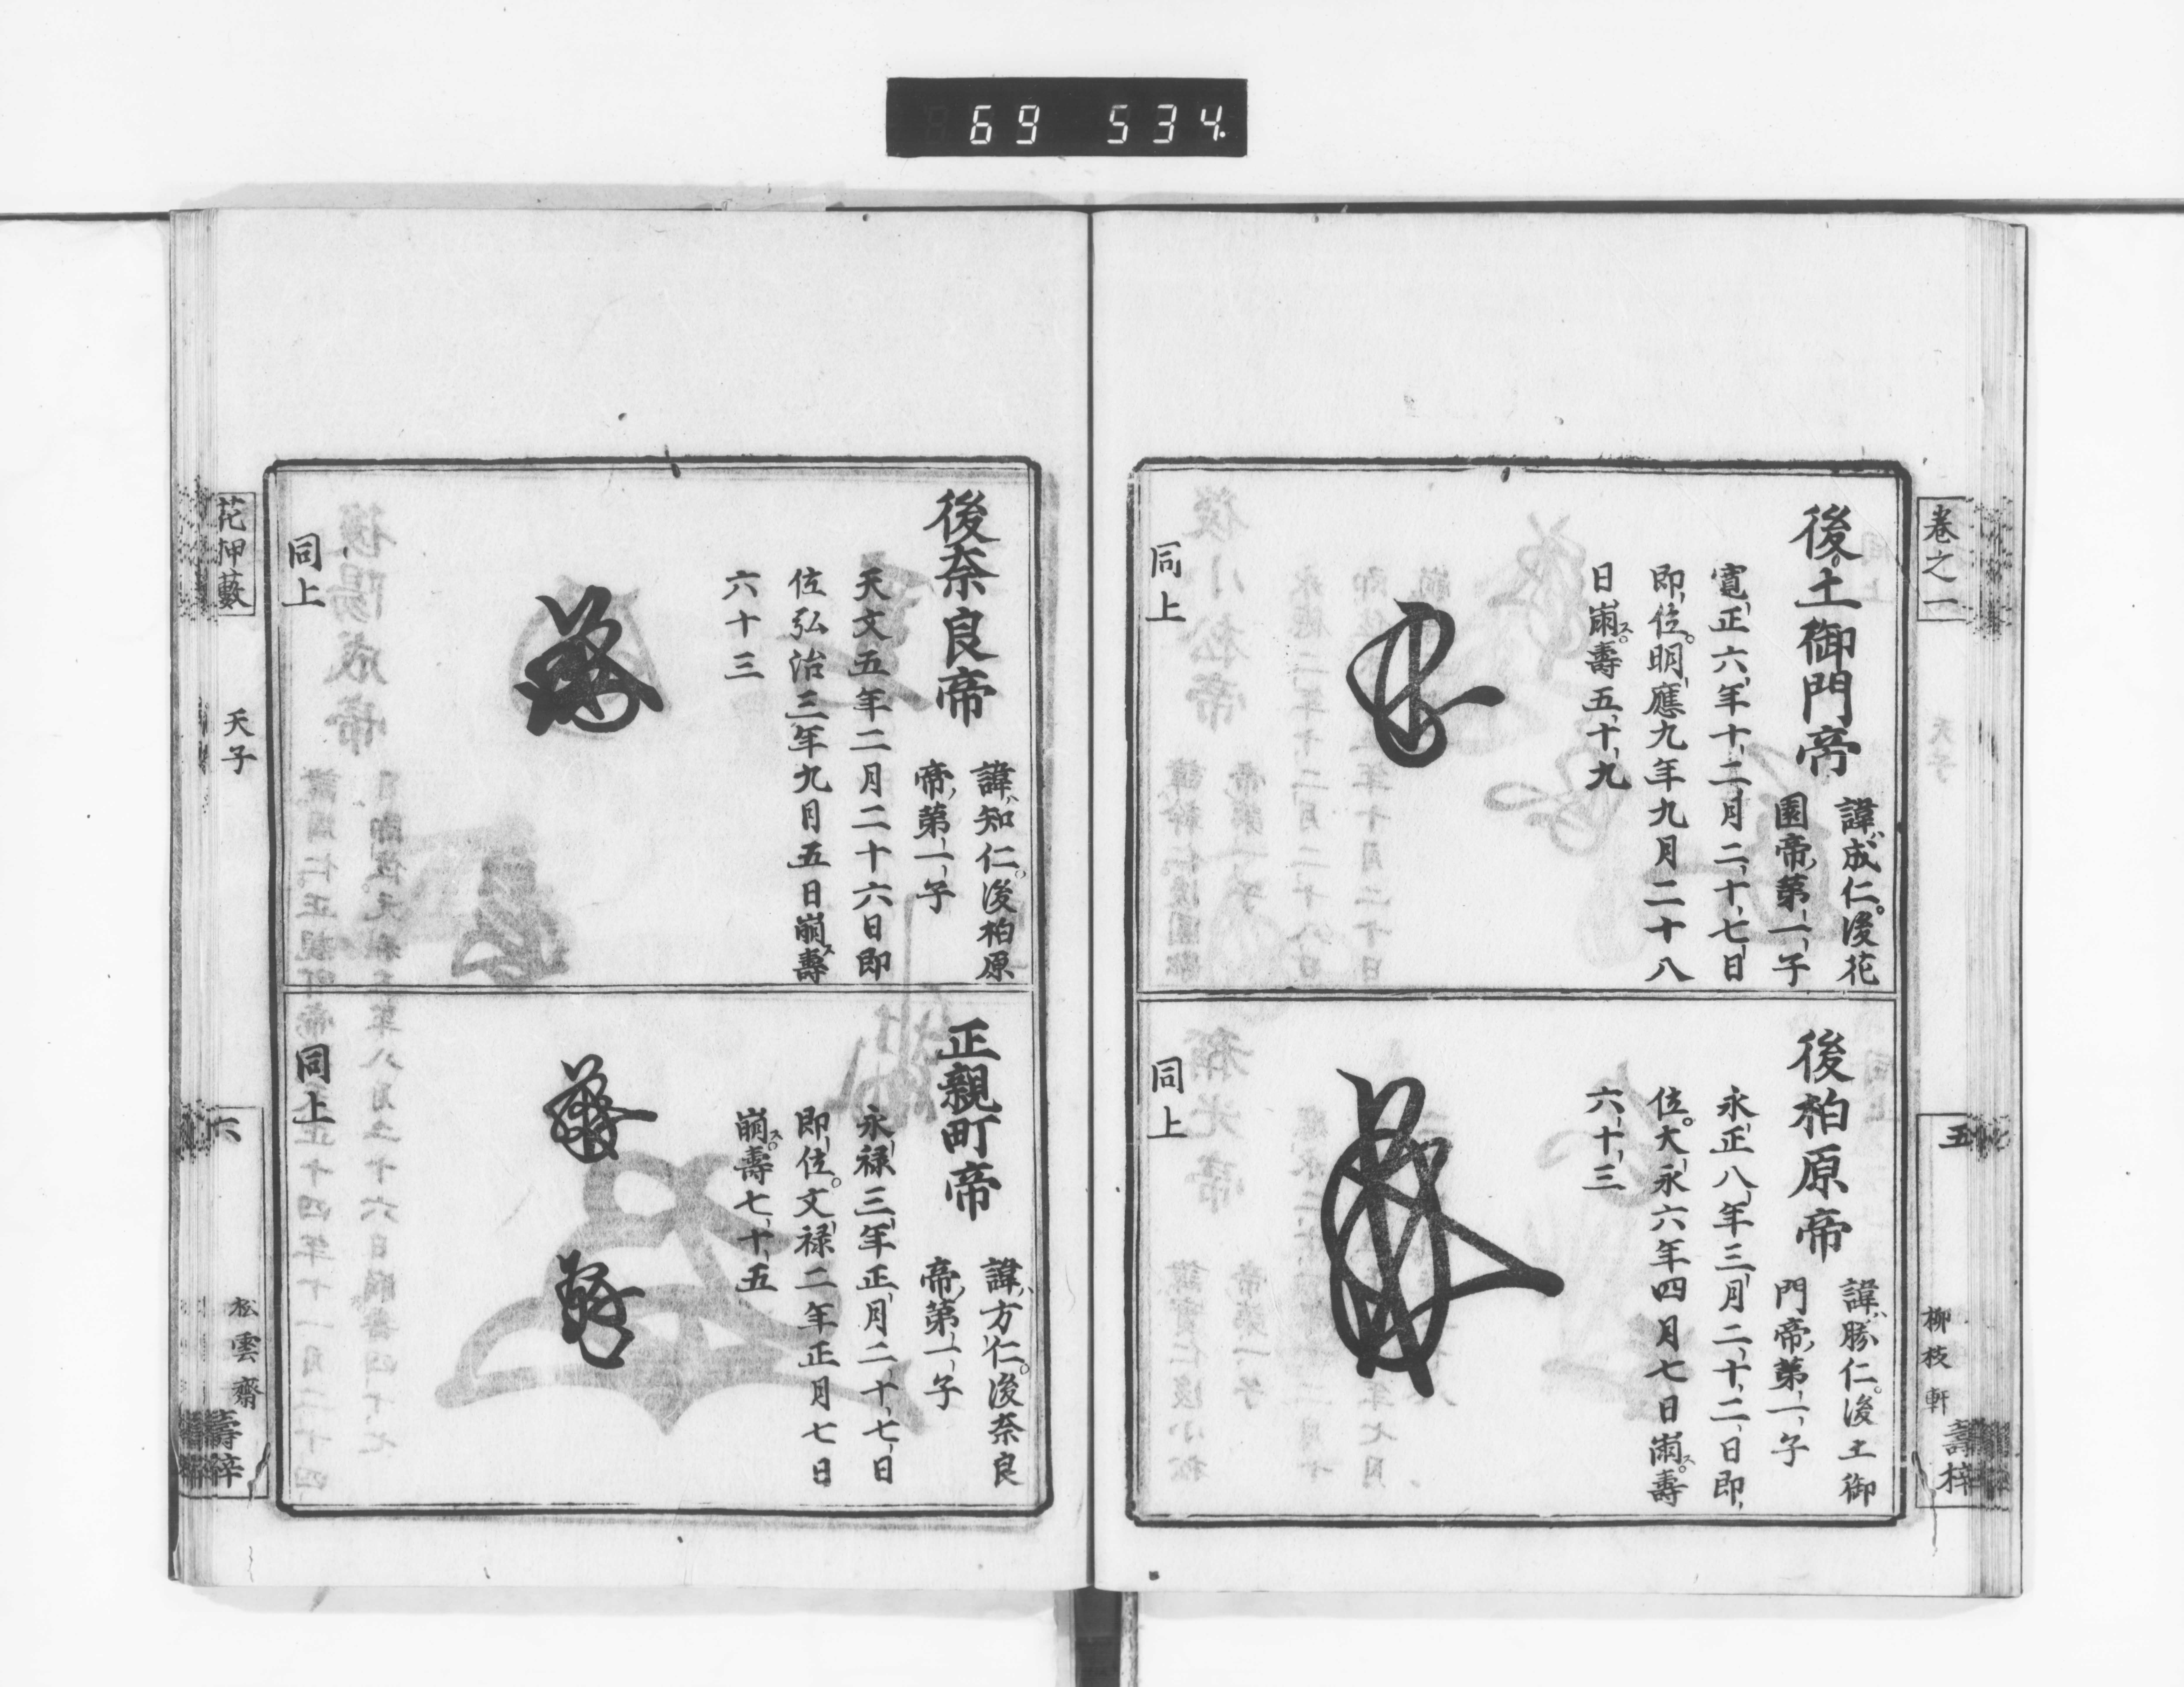 69 534.
卷之一
五
柳枝軒
壽梓
後土御門帝
諱成仁。後花
園帝第一子
寛正六年十二月二十七日
即位。明應九年九月二十八
日崩。壽五十九
同上
後柏原帝
諱勝仁。後土御
門帝第一子
永正八年三月二十二日即
位。大永六年四月七日崩。壽
六十三
同上
後奈良帝
諱知仁。後柏原
帝第一子
天文五年二月二十六日即
位弘治三年九月五日崩壽
六十三
同上
正親町帝
諱方仁。後奈良
帝第一子
永禄三年正月二十七日
即位。文禄二年正月七日
崩。壽七十五
同上
花押藪
天子
六
松雲齋
壽梓